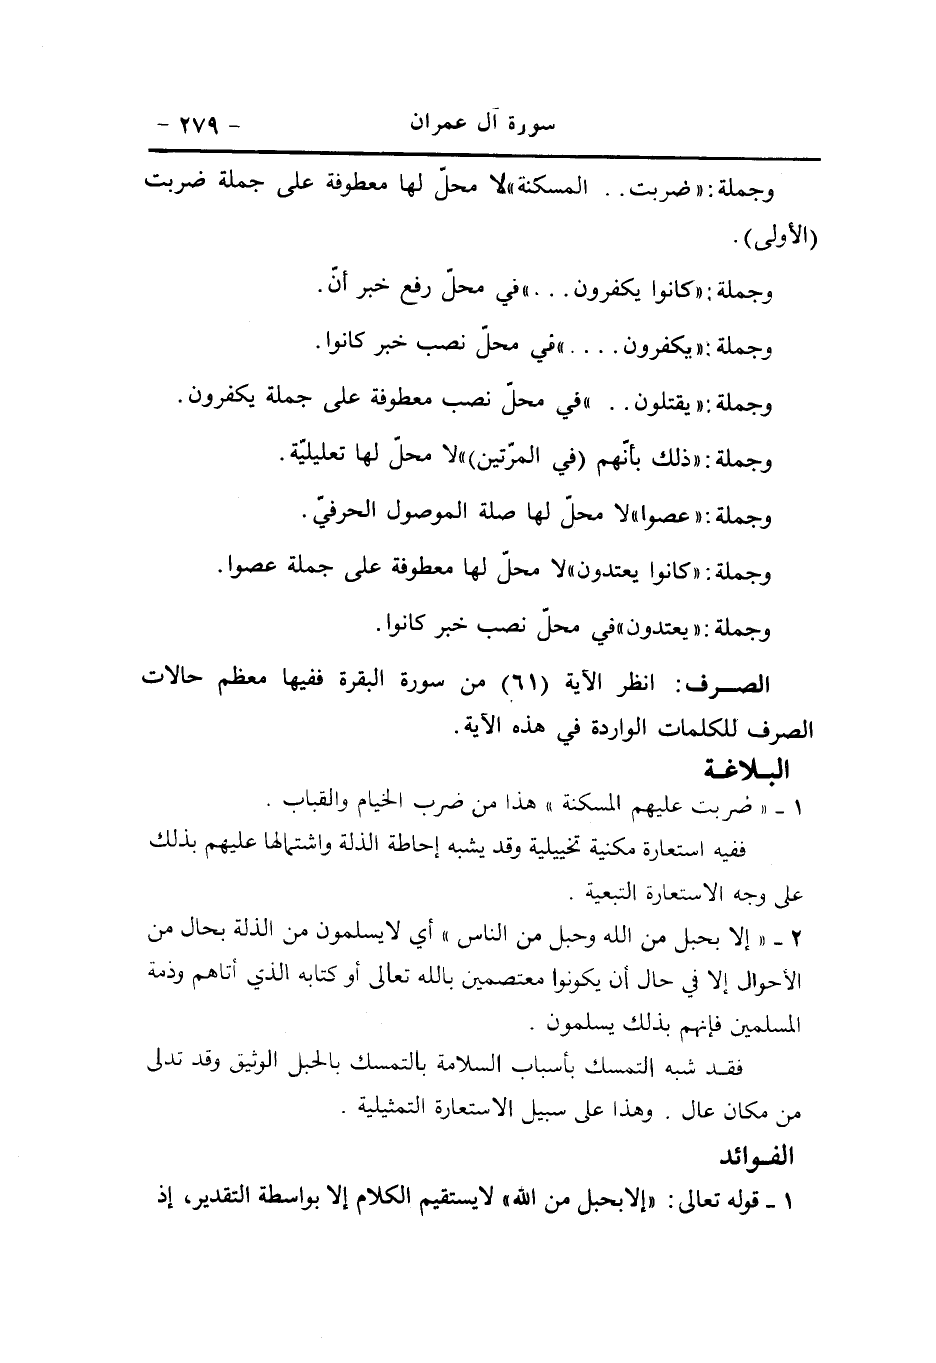 سورة آل عمران - ٢٧٩ -
وجملة: «ضربت.. المسكنة» لا محلّ لها معطوفة على جملة ضربت
(الأولى).
وجملة: «كانوا يكفرون...» في محلّ رفع خبر أنّ.
وجملة: «يكفرون....» في محلّ نصب خبر كانوا.
وجملة: «يقتلون.. » في محلّ نصب معطوفة على جملة يكفرون.
وجملة: «ذلك بأنّهم (في المرّتين)» لا محلّ لها تعليليّة.
وجملة: «عصوا» لا محلّ لها صلة الموصول الحرفيّ.
وجملة: «كانوا يعتدون» لا محلّ لها معطوفة على جملة عصوا.
وجملة: «يعتدون» في محلّ نصب خبر كانوا.
الصرف: انظر الآية (٦١) من سورة البقرة ففيها معظم حالات
الصرف للكلمات الواردة في هذه الآية.
البلاغة
١ - « ضربت عليهم المسكنة » هذا من ضرب الخيام والقباب .
ففيه استعارة مكنية تخييلية وقد يشبه إحاطة الذلة واشتمالها عليهم بذلك
على وجه الاستعارة التبعية .
٢ - « إلا بحبل من الله وحبل من الناس » أي لايسلمون من الذلة بحال من
الأحوال إلا في حال أن يكونوا معتصمين بالله تعالى أو كتابه الذي أتاهم وذمة
المسلمين فإنهم بذلك يسلمون .
فقد شبه التمسك بأسباب السلامة بالتمسك بالحبل الوثيق وقد تدلى
من مكان عال . وهذا على سبيل الاستعارة التمثيلية .
الفوائد
١ - قوله تعالى: «إلا بحبل من الله» لايستقيم الكلام إلا بواسطة التقدير، إذ